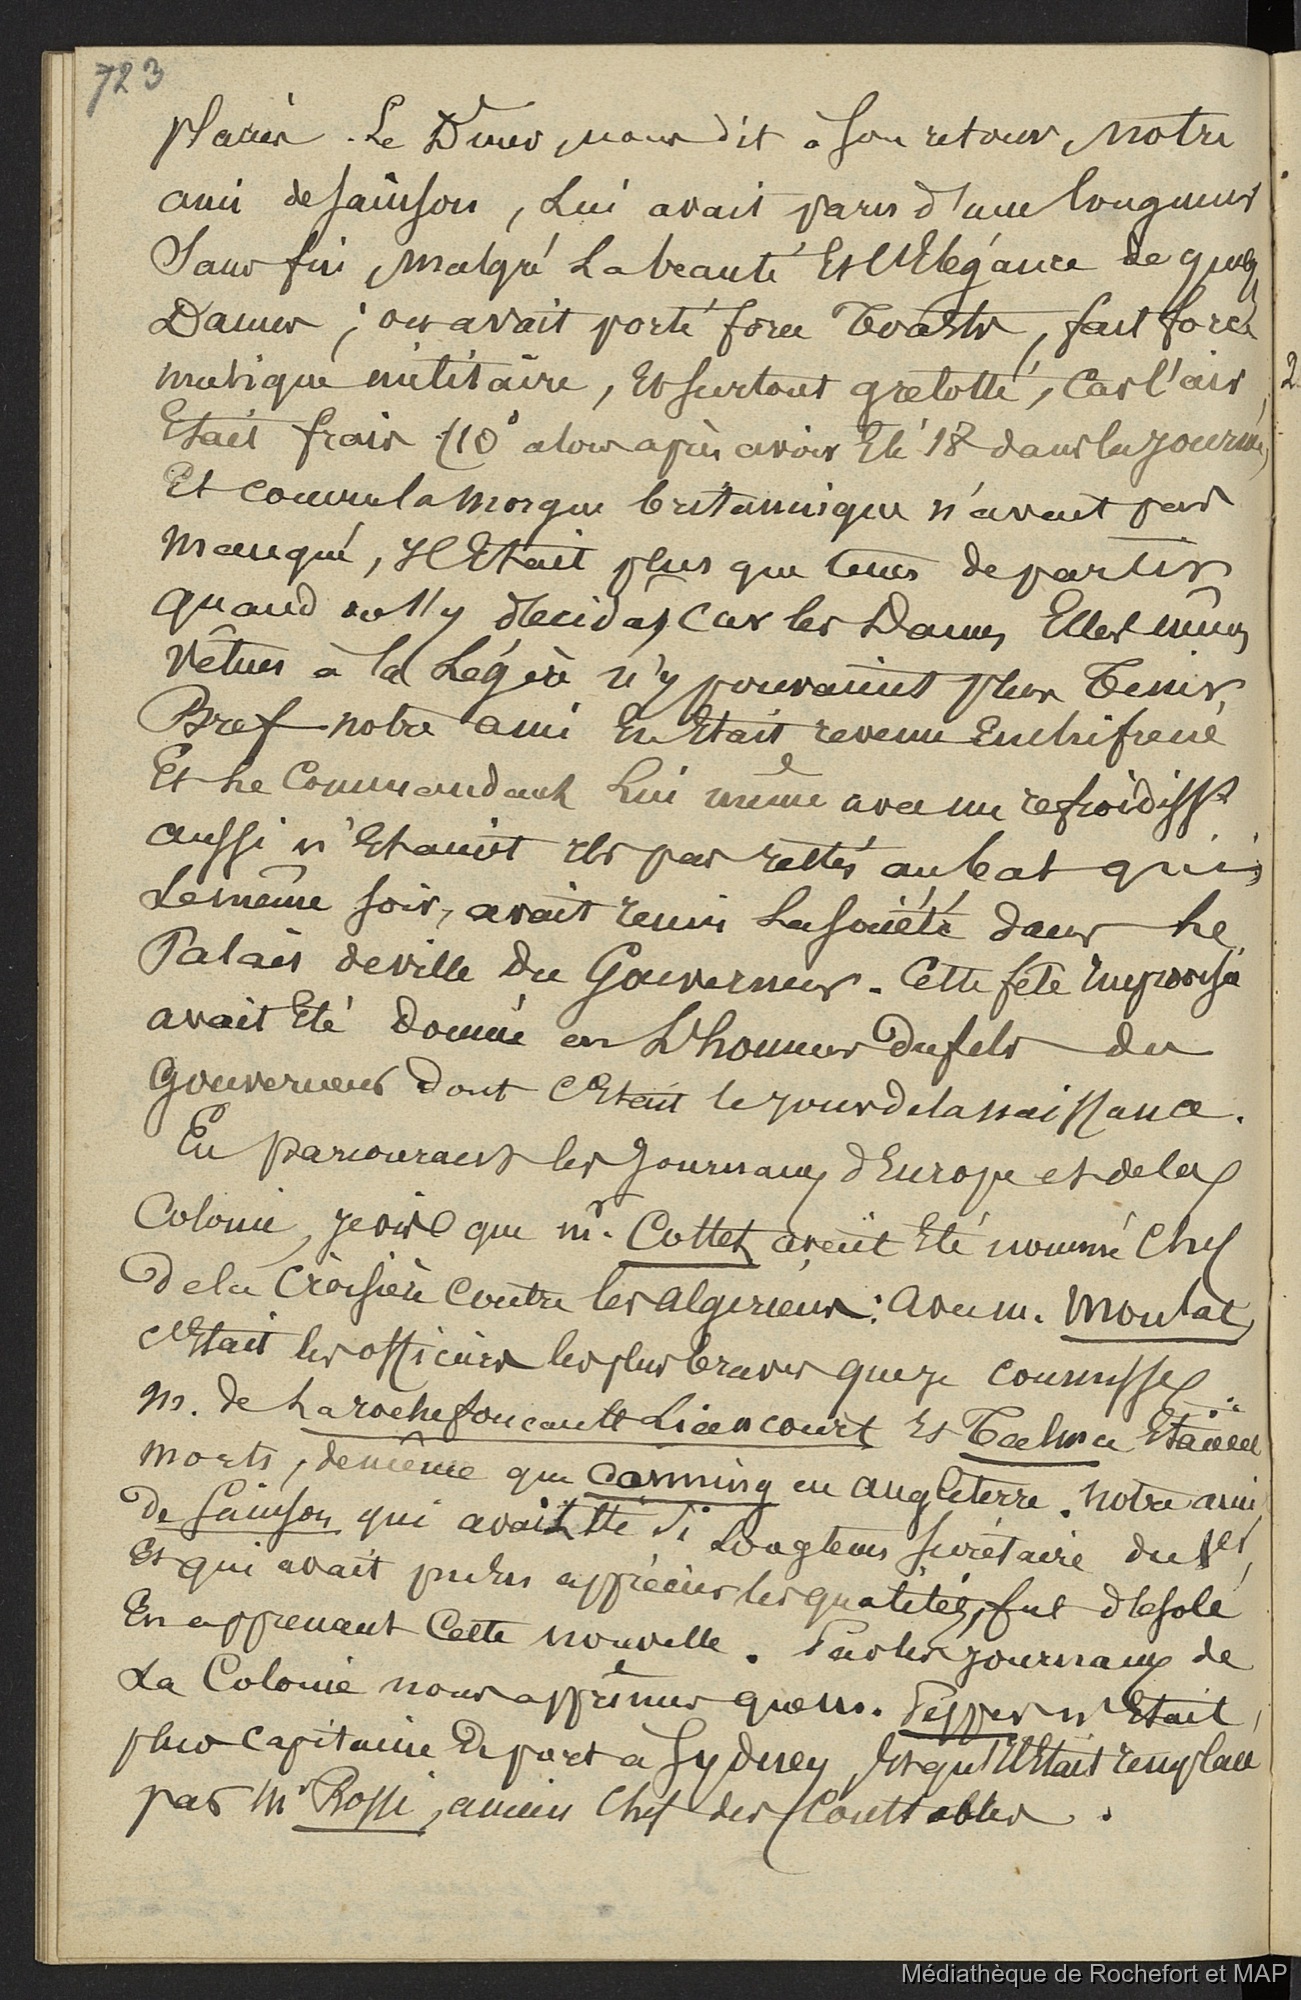 723
places. Le Diner, nous dit à son retour, notre
ami de Sainson, Lui avait paru d'une longueur
Sans fin, malgré La beauté Et l'Elégance de quelq
Dames ; on avait porté force Toasts, fait force
musique militaire, Et surtout grelotté, Car l'air
Etait frais (10° alors après avoir Eté 18 dans la journée)
Et comme la morgue britannique n'avait pas
manqué, Il Etait plus que tems de partir
quand on s'y décida, Car les Dames Elles mêmes
vêtues à la Légère n'y pouvaient plus Tenir.
Bref notre ami En Etait revenu Enchifrené
Et Le Commandant Lui même avec un refroidisst
aussi n'Etaient ils pas restés au bal qui,
Le même soir, avait reuni La société dans Le
Palais de ville Du Gouverneur. Cette fête Improvisée
avait Eté Donnée en L'honneur Du fils du
Gouverneur Dont c'Etait le jour de la naissance.
En parcourant les Journaux d'Europe et de la
Colonie, je vis que mr. Collet avait Eté nommé Chef
De la Croisière Contre les algériens : avec m. Moulac
c'Etait les officiers les plus braves que je connusse
M. de Larochefoucault Liancourt Et Talma Etaient
morts, de même que Canning en angleterre. Notre ami
De Sainson qui avait Eté Si Longtems secrétaire du 1er,
Et qui avait pu En apprécier les qualités, fut désolé
En apprenant Cette nouvelle. Par les journaux de
La Colonie nous apprîmes que m. Piper n'Etait
plus Capitaine De port à Sydney, Et qu'Il Etait remplacé
par Mr Rossi, ancien Chef des Constables.
2
Médiathèque de Rochefort et MAP